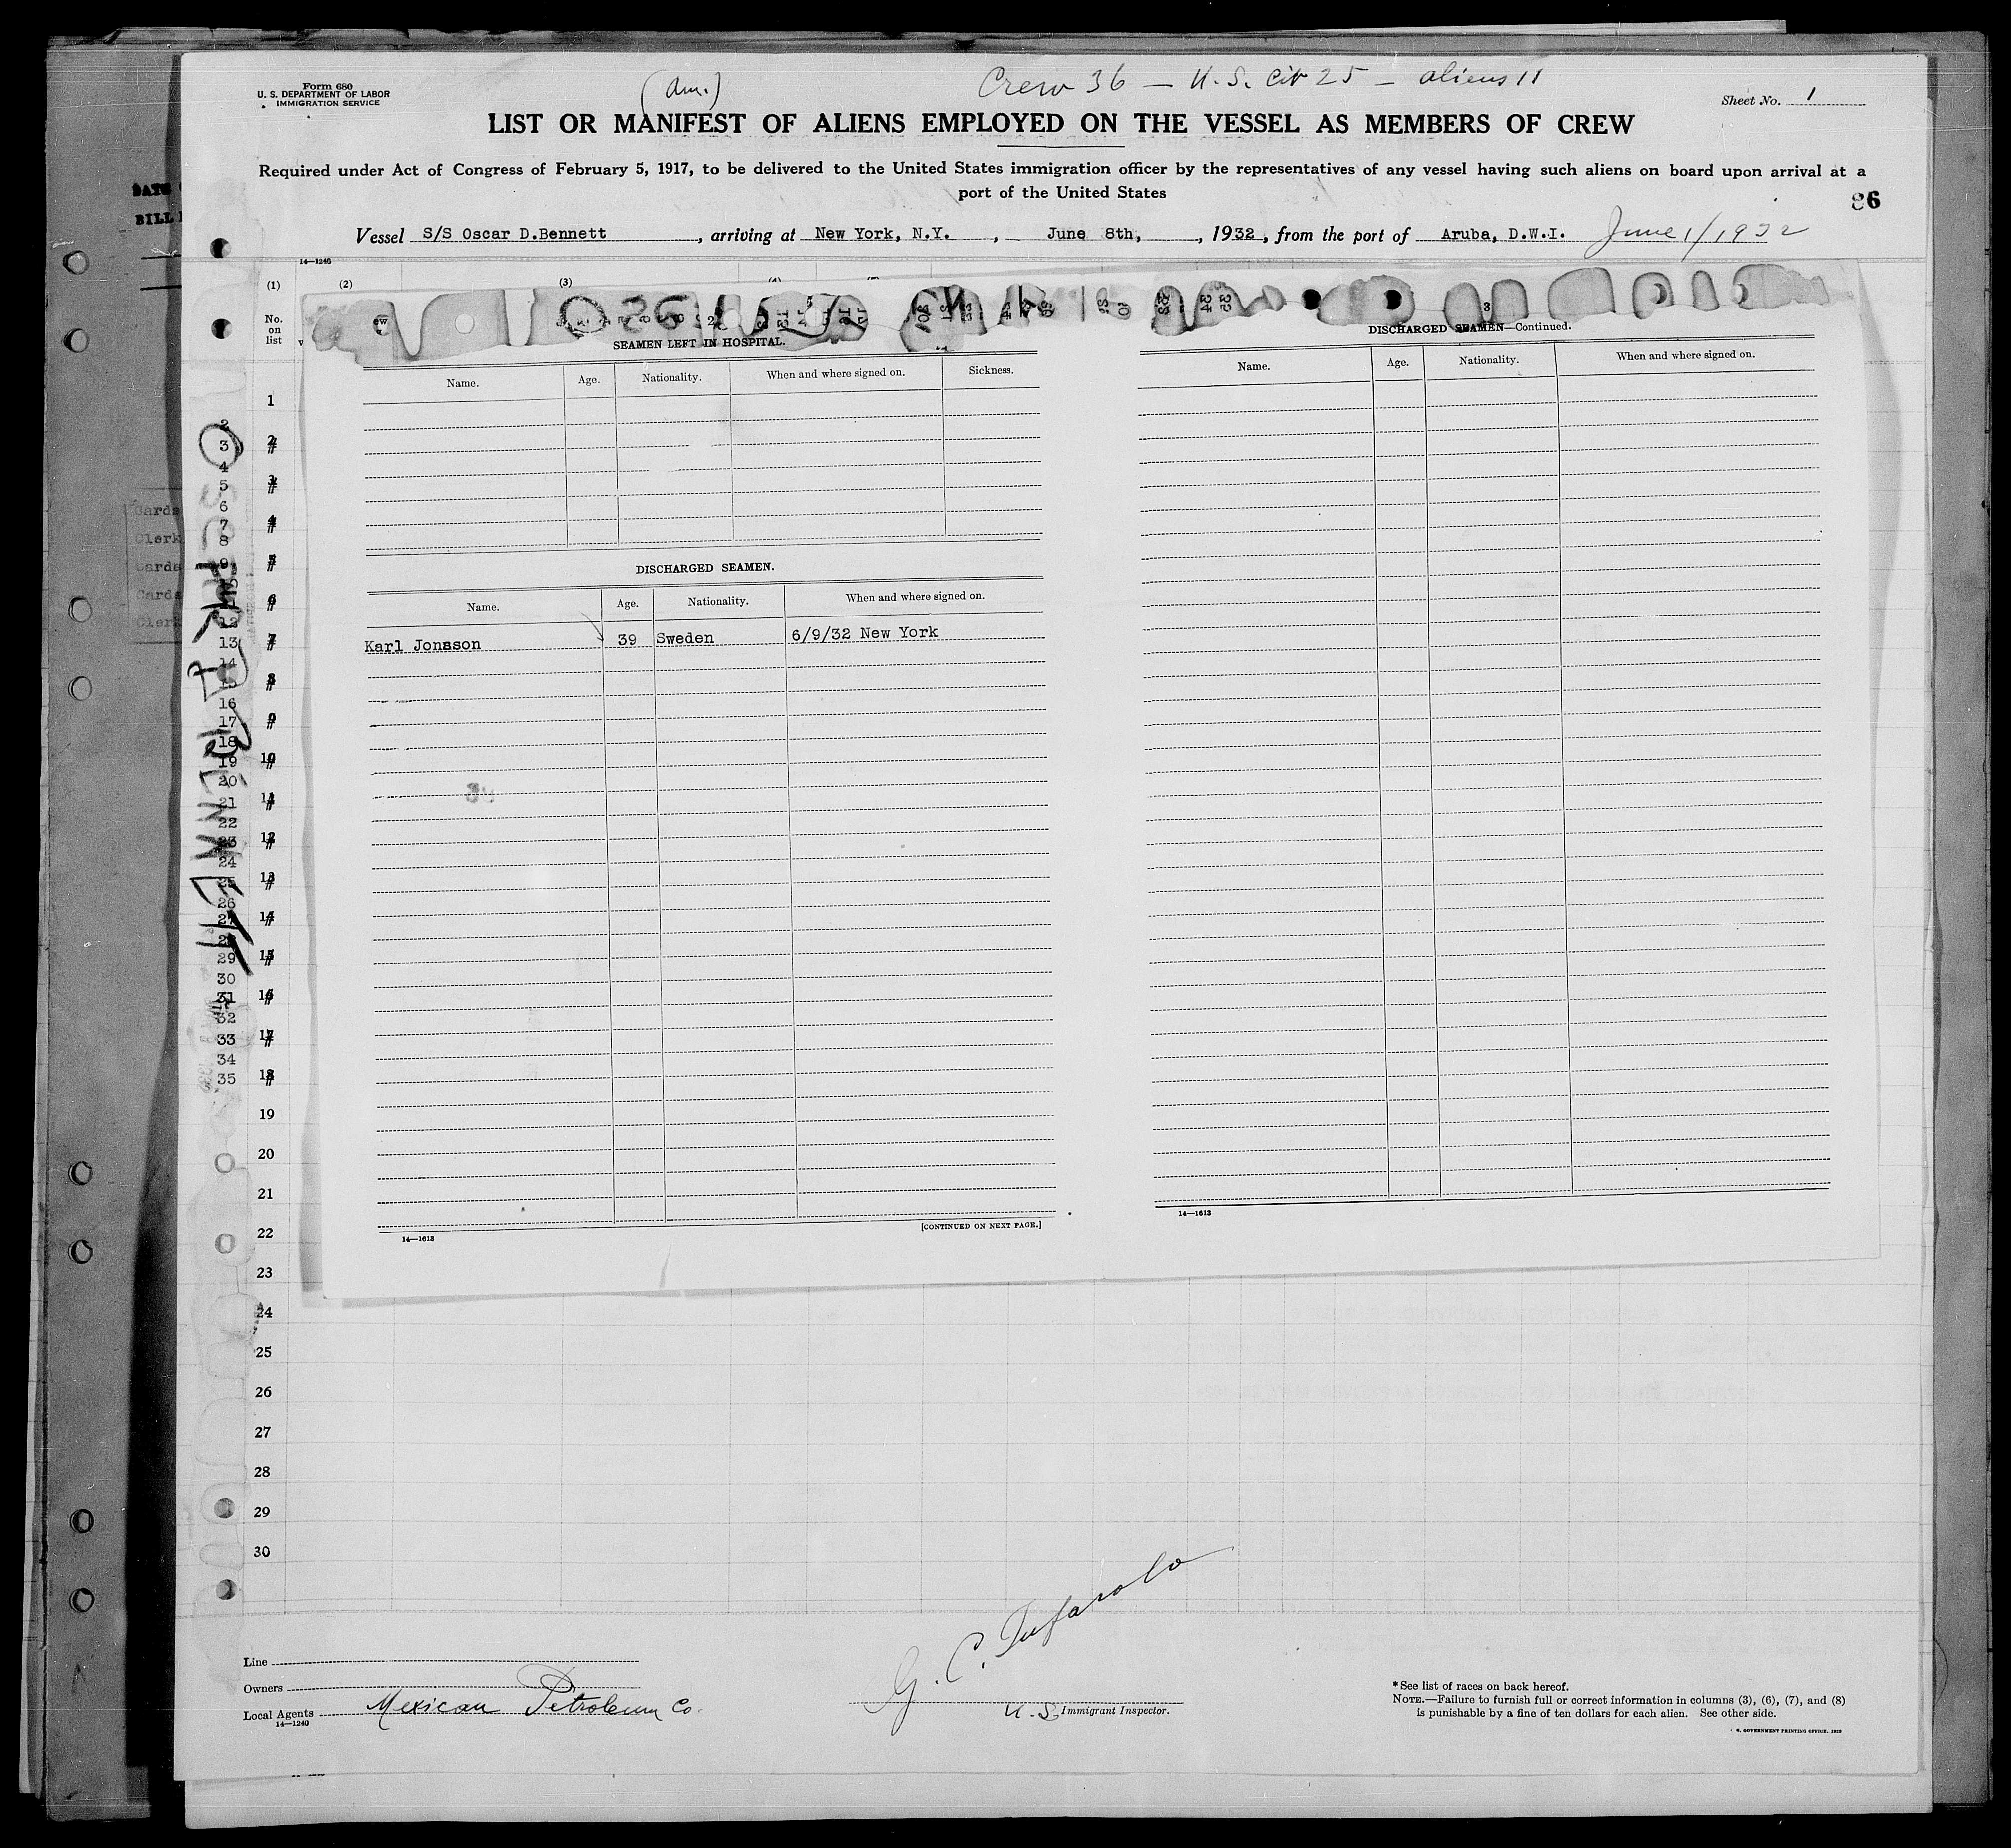 Form 680
U. S. DEPARTMENT OF LABOR
IMMIGRATION SERVICE
(Am.)
Crew 36 — U. S. Cit 25 — aliens 11
Sheet No. 1
LIST OR MANIFEST OF ALIENS EMPLOYED ON THE VESSEL AS MEMBERS OF CREW
Required under Act of Congress of February 5, 1917, to be delivered to the United States immigration officer by the representatives of any vessel having such aliens on board upon arrival at a
port of the United States
86
Vessel S/S Oscar D.Bennett, arriving at New York, N.Y., June 8th, , 1932, from the port of Aruba, D.W.I. June 1/1932
14—1240
(1) (2) (3) (4)
No. on list
SEAMEN LEFT IN HOSPITAL.
Name. Age. Nationality. When and where signed on. Sickness.
DISCHARGED SEAMEN.
Name. Age. Nationality. When and where signed on.
Karl Jonsson 39 Sweden 6/9/32 New York
[CONTINUED ON NEXT PAGE.]
14—1613
3
DISCHARGED SEAMEN—Continued.
Name. Age. Nationality. When and where signed on.
14—1613
1
2
3
4
5
6
7
8
9
10
11
12
13
14
15
16
17
18
19
20
21
22
23
24
25
26
27
28
29
30
Line
Owners
Local Agents Mexican Petroleum Co.
14—1240
G. C. Tufarolo
U. S. Immigrant Inspector.
*See list of races on back hereof.
NOTE.—Failure to furnish full or correct information in columns (3), (6), (7), and (8)
is punishable by a fine of ten dollars for each alien. See other side.